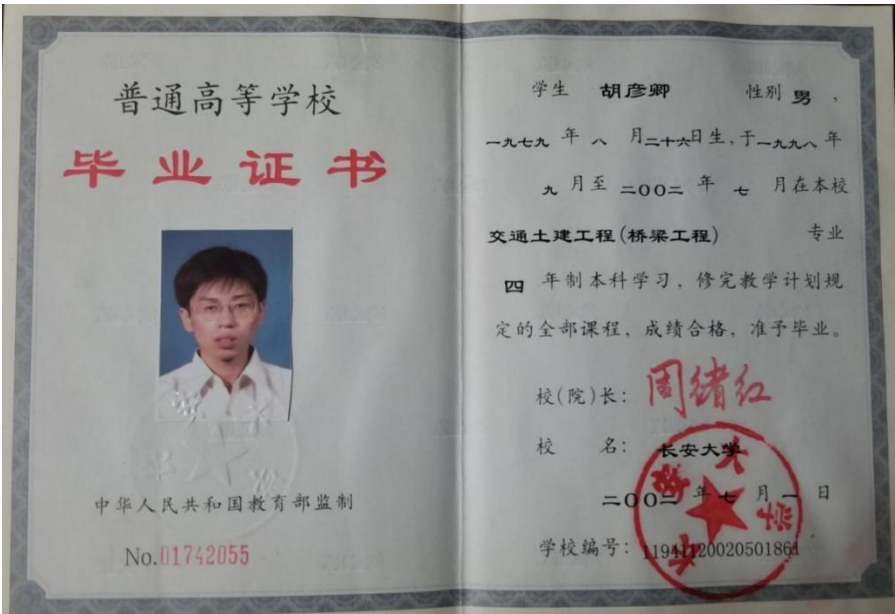 普通高等学校
毕业证书
中华人民共和国教育部监制
No.01742055
学生 胡彦卿 性别 男，
一九七九 年 八 月二十六日生，于一九九八 年
九 月至 二00二 年 七 月在本校
交通土建工程(桥梁工程) 专业
四 年制本科学习，修完教学计划规
定的全部课程，成绩合格，准予毕业。
校(院)长：周绪红
校 名：长安大学
二00二 年 七 月 一 日
学校编号：11941120020501861